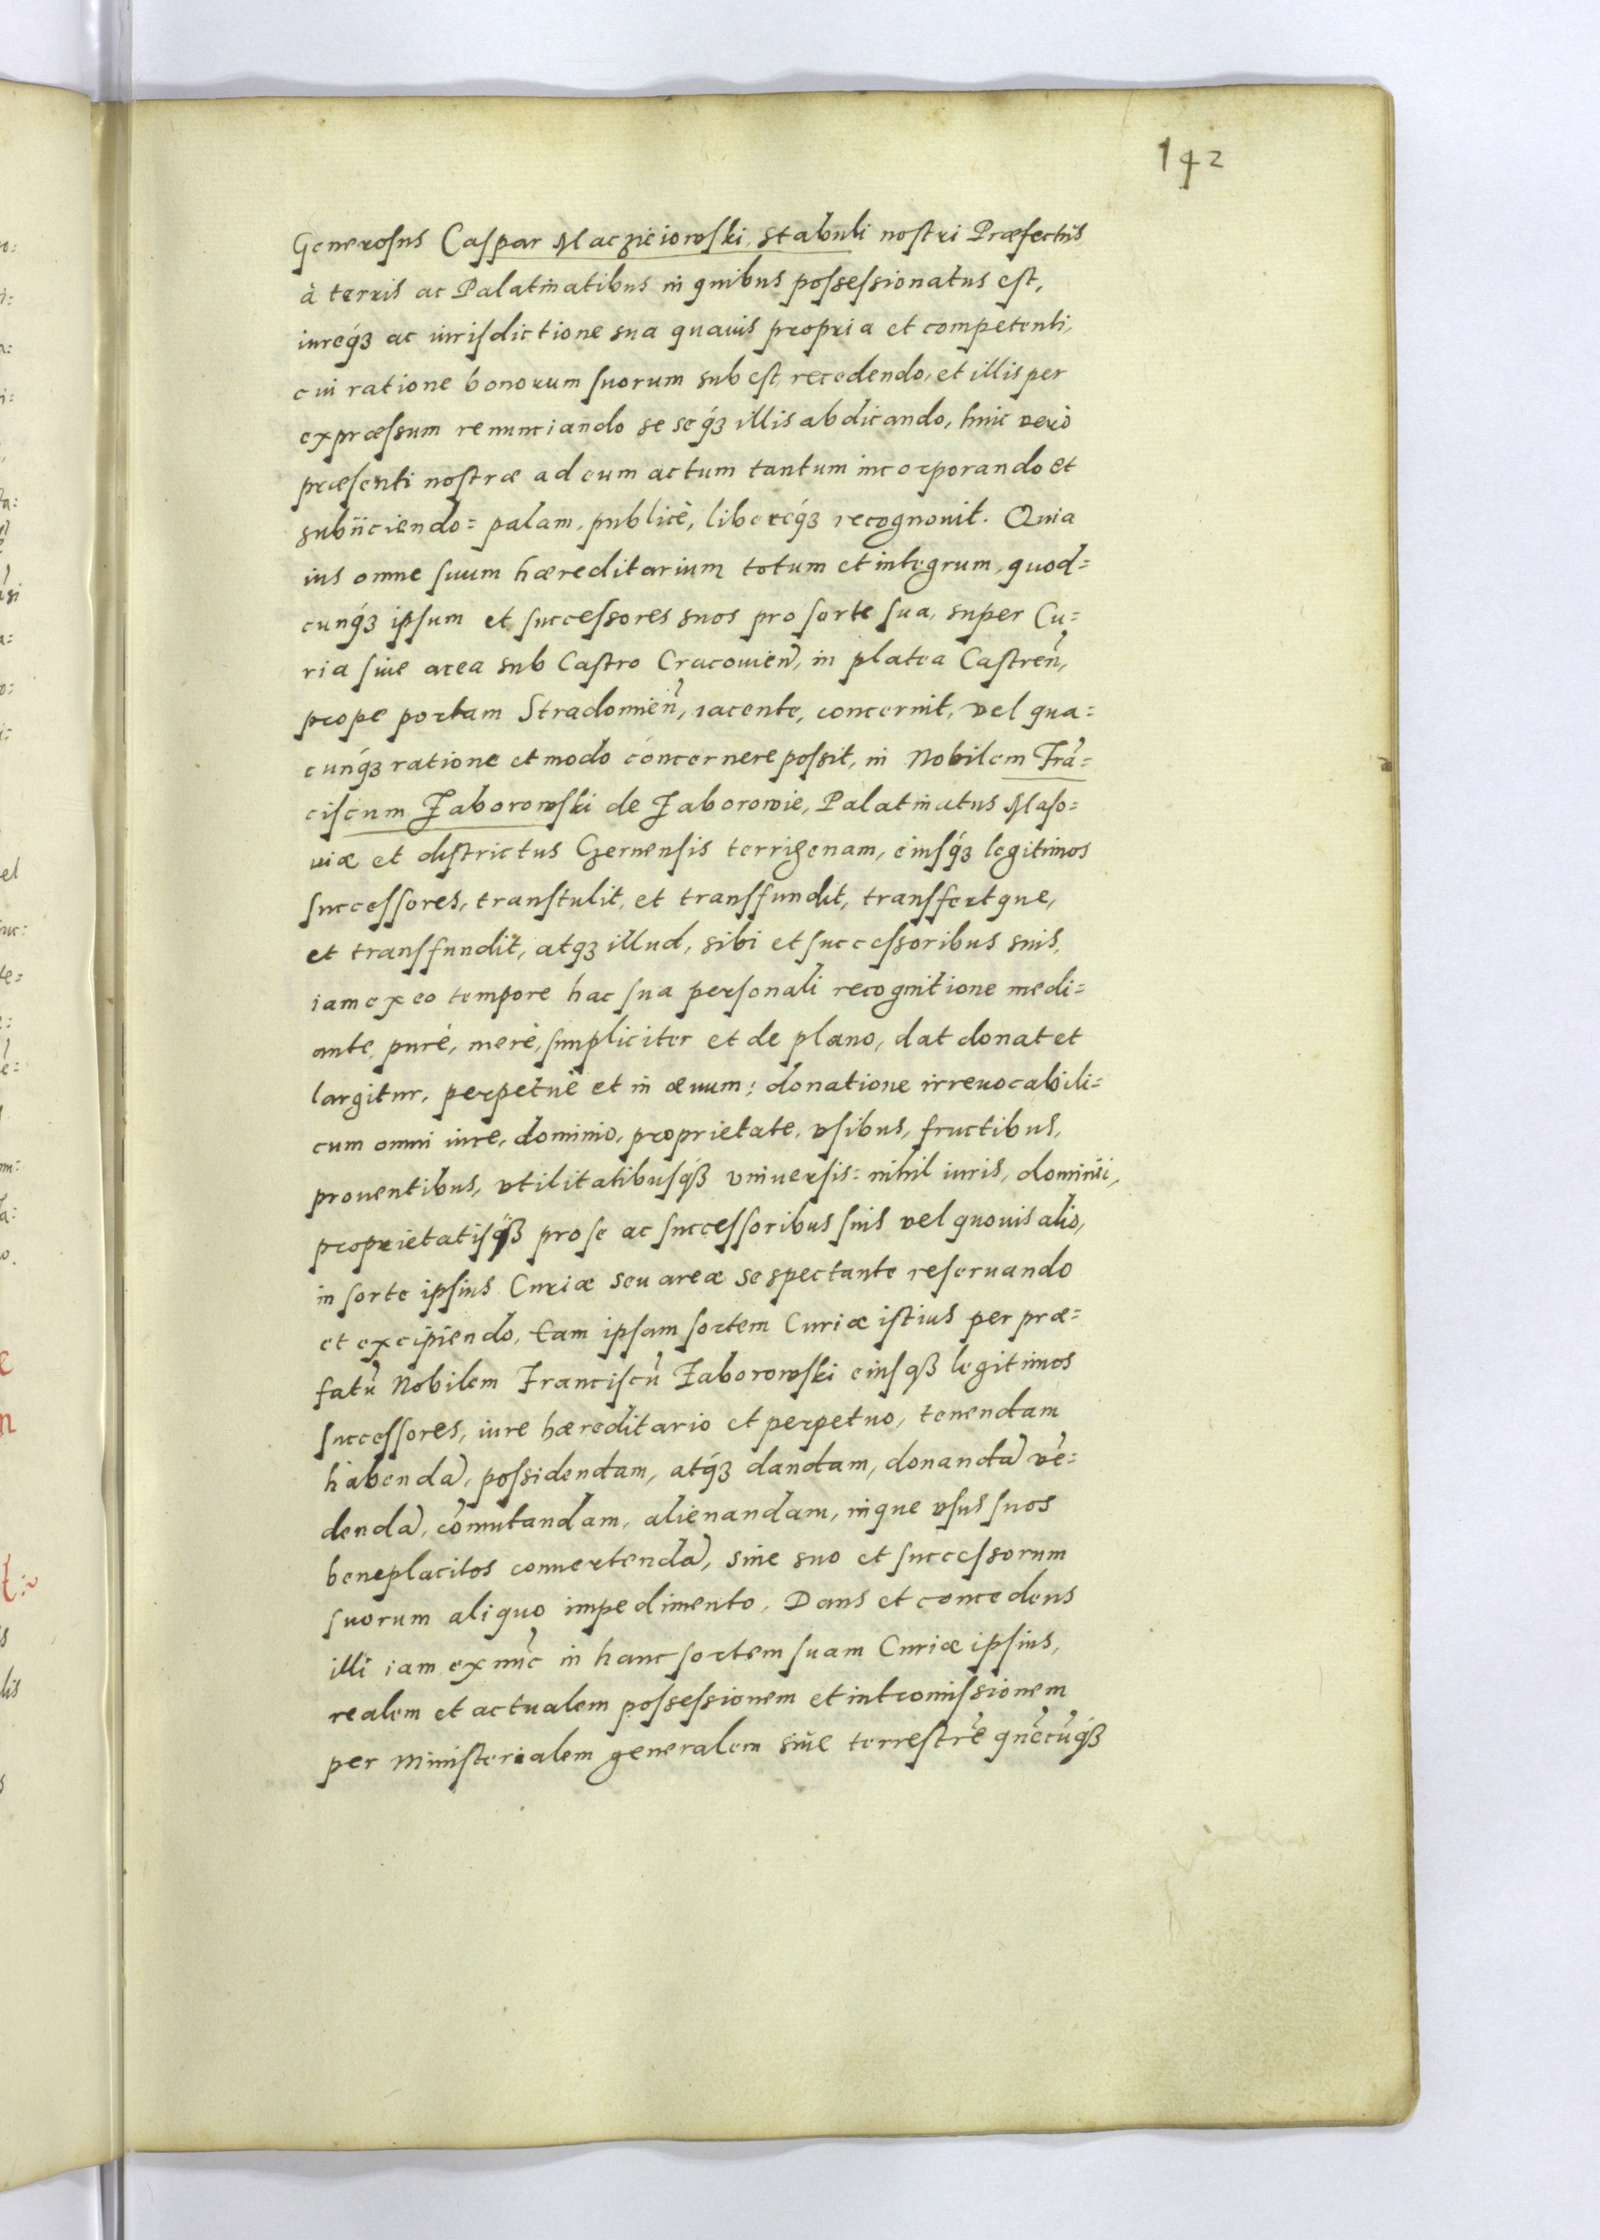 142
Generosus Caspar Maczieiowski, stabuli nostri Præfectus
à terris ac Palatinatibus in quibus possessionatus est,
iureq́ꝫ ac iurisdictione sua quauis propria et competenti,
cui ratione bonorum suorum subest, recedendo, et illis per
expræssum renunciando se seq́ꝫ illis abdicando, huic verò
præsenti nostræ ad eum actum tantum incorporando et
subijciendo= palam, publicè, libereq́ꝫ recognouit. Quia
ius omne suum hæreditarium totum et integrum, quod=
cunq́ꝫ ipsum et successores suos pro sorte sua, super Cu=
ria siue area sub Castro Cracouien̄, in platea Castren̄,
prope portam Stradomien̄, iacente, concernit, vel qua=
cunq́ꝫ ratione et modo concernere possit, in Nobilem Frā=
ciscum Zaborowski de Zaborowie, Palatinatus Maso=
uiæ et districtus Czernensis terrigenam, eiusq́ꝫ legitimos
successores, transtulit, et transfundit, transfertque,
et transfundit, atqꝫ illud, sibi et successoribus suis,
iam ex eo tempore hac sua personali recognitione medi=
ante, purè, merè, simpliciter et de plano, dat donat et
largitur, perpetuè et in æuum; donatione irreuocabili=
cum omni iure, dominio, proprietate, vsibus, fructibus,
prouentibus, vtilitatibusq́ꝫ vniuersis: nihil iuris, dominij,
proprietatisq́ꝫ pro se ac successoribus suis vel quouis alio,
in sorte ipsius Curiæ seu areæ se spectante reseruando
et excipiendo. Eam ipsam sortem Curiæ istius per præ=
fatū Nobilem Franciscū Zaborowski eiusqꝫ legitimos
successores, iure hæreditario et perpetuo, tenendam
habendā, possidendam, atq́ꝫ dandam, donandā vē=
dendā, cōmutandam, alienandam, inque vsus suos
beneplacitos conuertendā, sine suo et successorum
suorum aliquo impedimento. Dans et concedens
illi iam ex nūc in hanc sortem suam Curiæ ipsius,
realem et actualem possessionem et intromissionem
per Ministerialem generalem siue terrestrē quēcūq́ꝫ